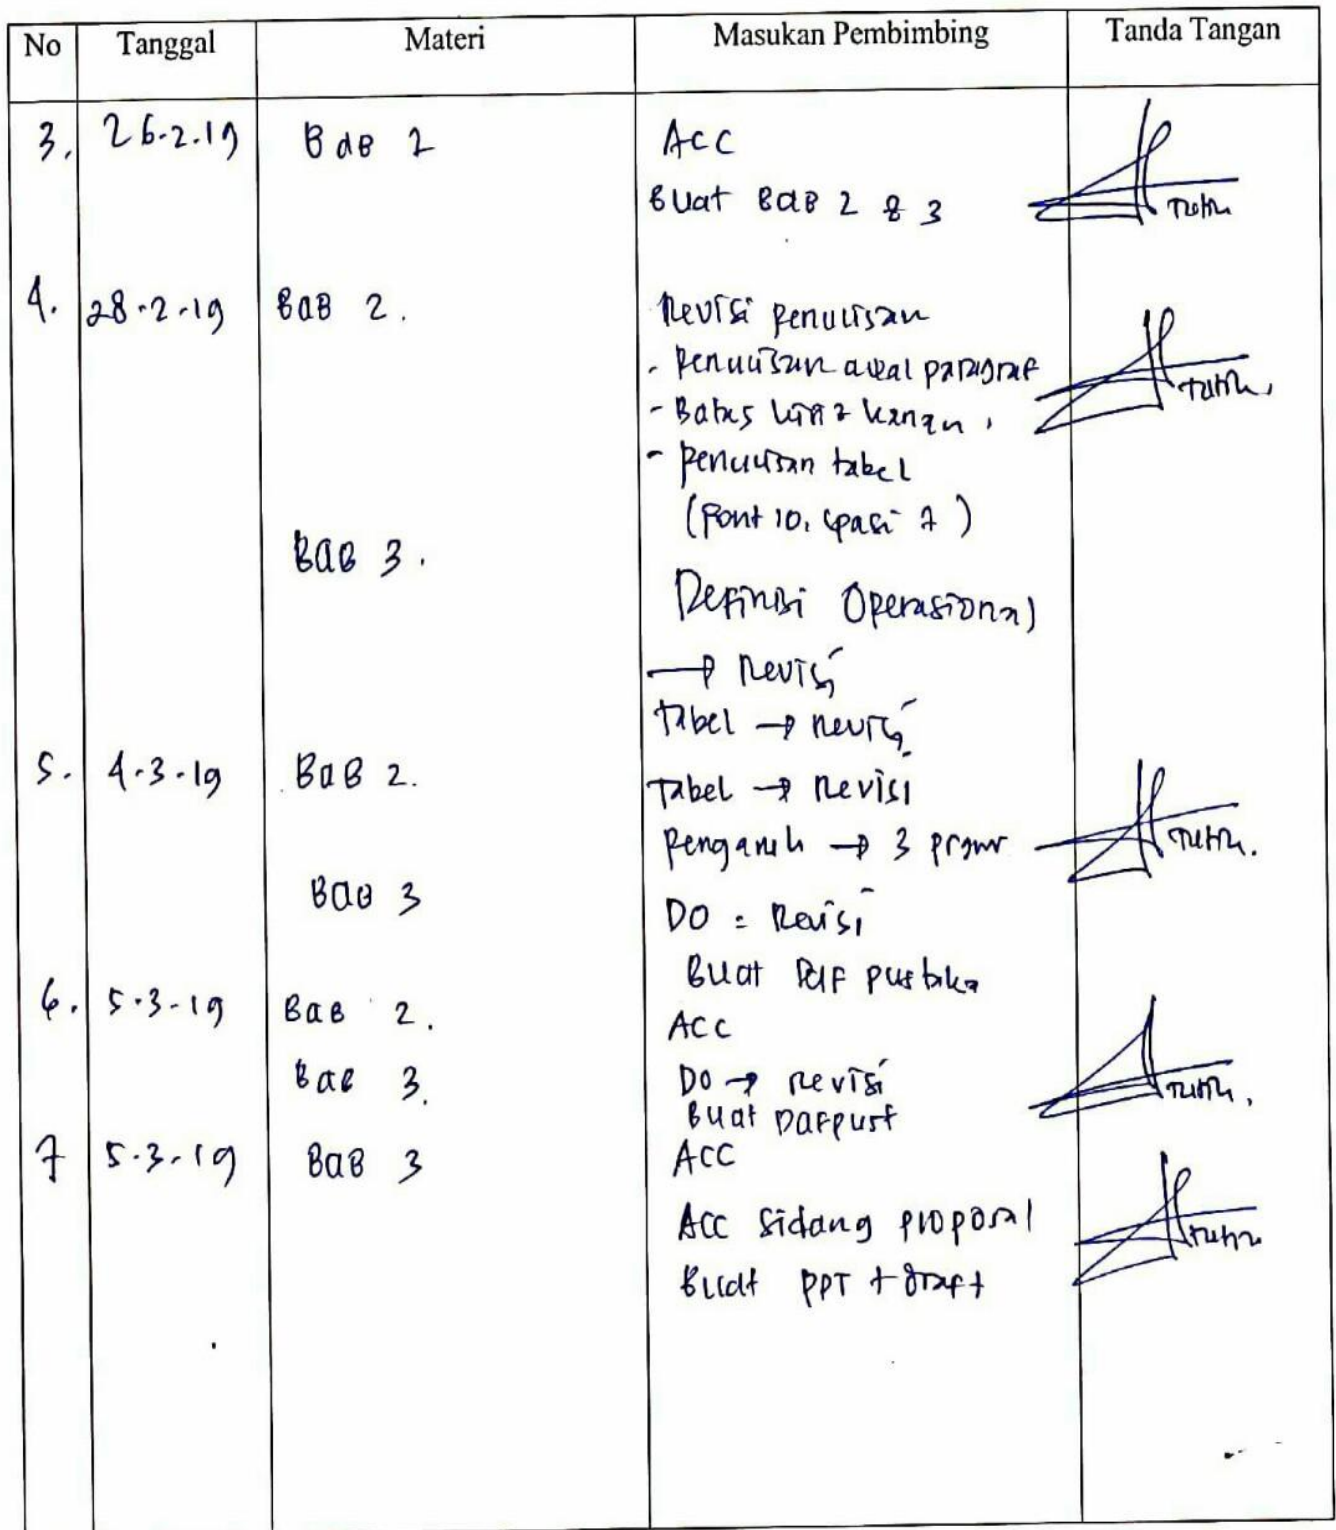 No Tanggal Materi Masukan Pembimbing Tanda Tangan
3. 26.2.19 BaB 2 ACC
Buat BaB 2 & 3
4. 28.2.19 BaB 2. Revisi penulisan
- penulisan awal paragraf
- Batas kiri & kanan,
- penulisan tabel
(Font 10, spasi 1)
BaB 3.
Definisi Operasional
→ Revisi
Tabel → Revisi
5. 4.3.19 BaB 2. Tabel → Revisi
Pengaruh → 3
BaB 3 DO = Revisi
Buat Daf pustaka
6. 5.3.19 BaB 2. ACC
BaB 3. DO → revisi
Buat Dafpust
7 5.3.19 BaB 3 ACC
ACC Sidang proposal
Buat PPT + draft